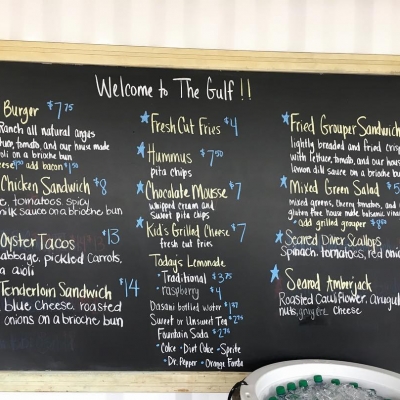 Welcome to The Gulf!!
Burger $7.75
Ranch all natural angus
tomato, and our house made
on a brioche bun
add bacon
Chicken Sandwich $8
tomatoes spicy
sauce on a brioche bun
Oyster Tacos $13
cabbage, pickled carrots,
aioli
Tenderloin Sandwich $14
blue cheese, roasted
onions on a brioche bun
Fresh Cut Fries $4
Hummus $7.50
pita chips
Chocolate Mousse $7
whipped cream and
sweet pita chips
Kid's Grilled Cheese $7
fresh cut fries
Today's Lemonade
• Traditional $3.75
• raspberry $4
Dasani bottled water
Sweet or Unsweet Tea
Fountain Soda
• Coke • Diet Coke • Sprite
• Dr. Pepper • Orange Fanta
Fried Grouper Sandwich
lightly breaded and fried crisp
with lettuce, tomato, and our house
lemon dill sauce on a brioche bun
Mixed Green Salad
mixed greens, cherry tomatoes, and
gluten free house made balsamic
• add grilled grouper
Seared Diver Scallops
Spinach, tomatoes, red
Seared Amberjack
Roasted Cauliflower,
nuts, gruyere cheese